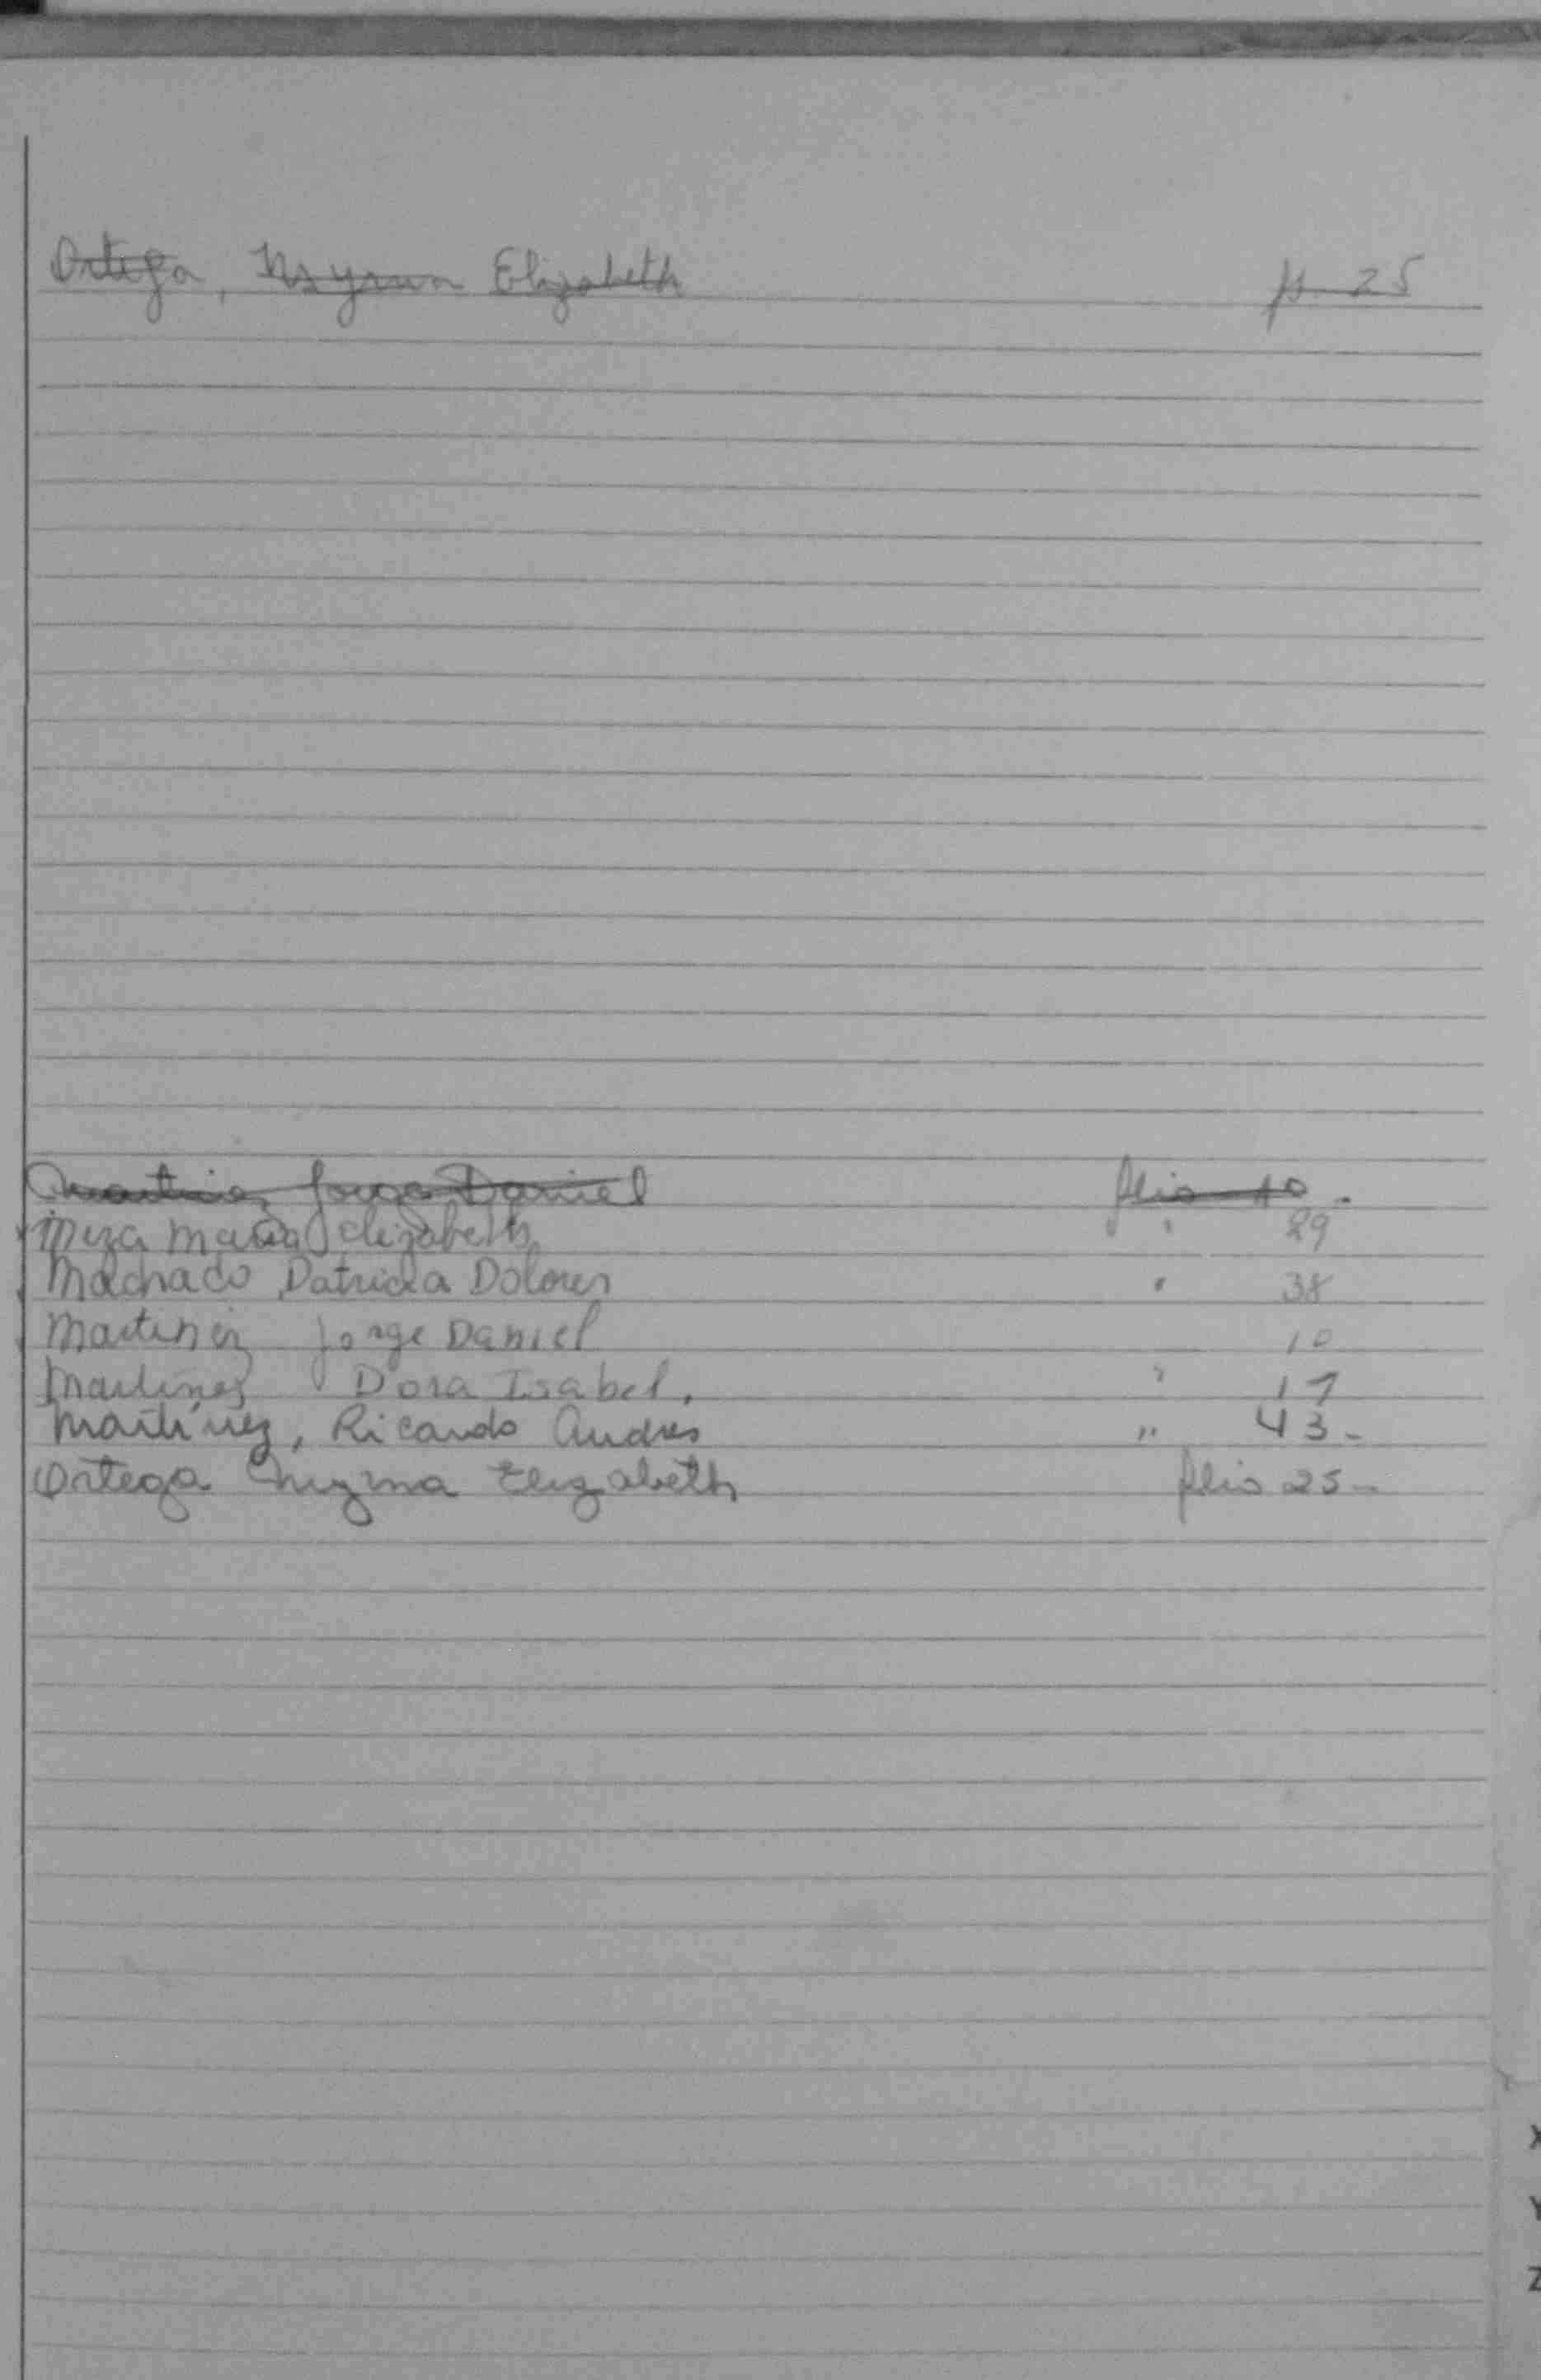 Ortega, Myrna Elizabeth p. 25
Martinez Jorge Daniel folio 10.
Meza Maria Elizabeth " 29
Machado Patricia Dolores " 38
Martinez Jorge Daniel 10
Martinez Dora Isabel. " 17
Martínez, Ricardo Andres " 43-
Ortega Myrna Elizabeth folio 25-
X
Y
Z